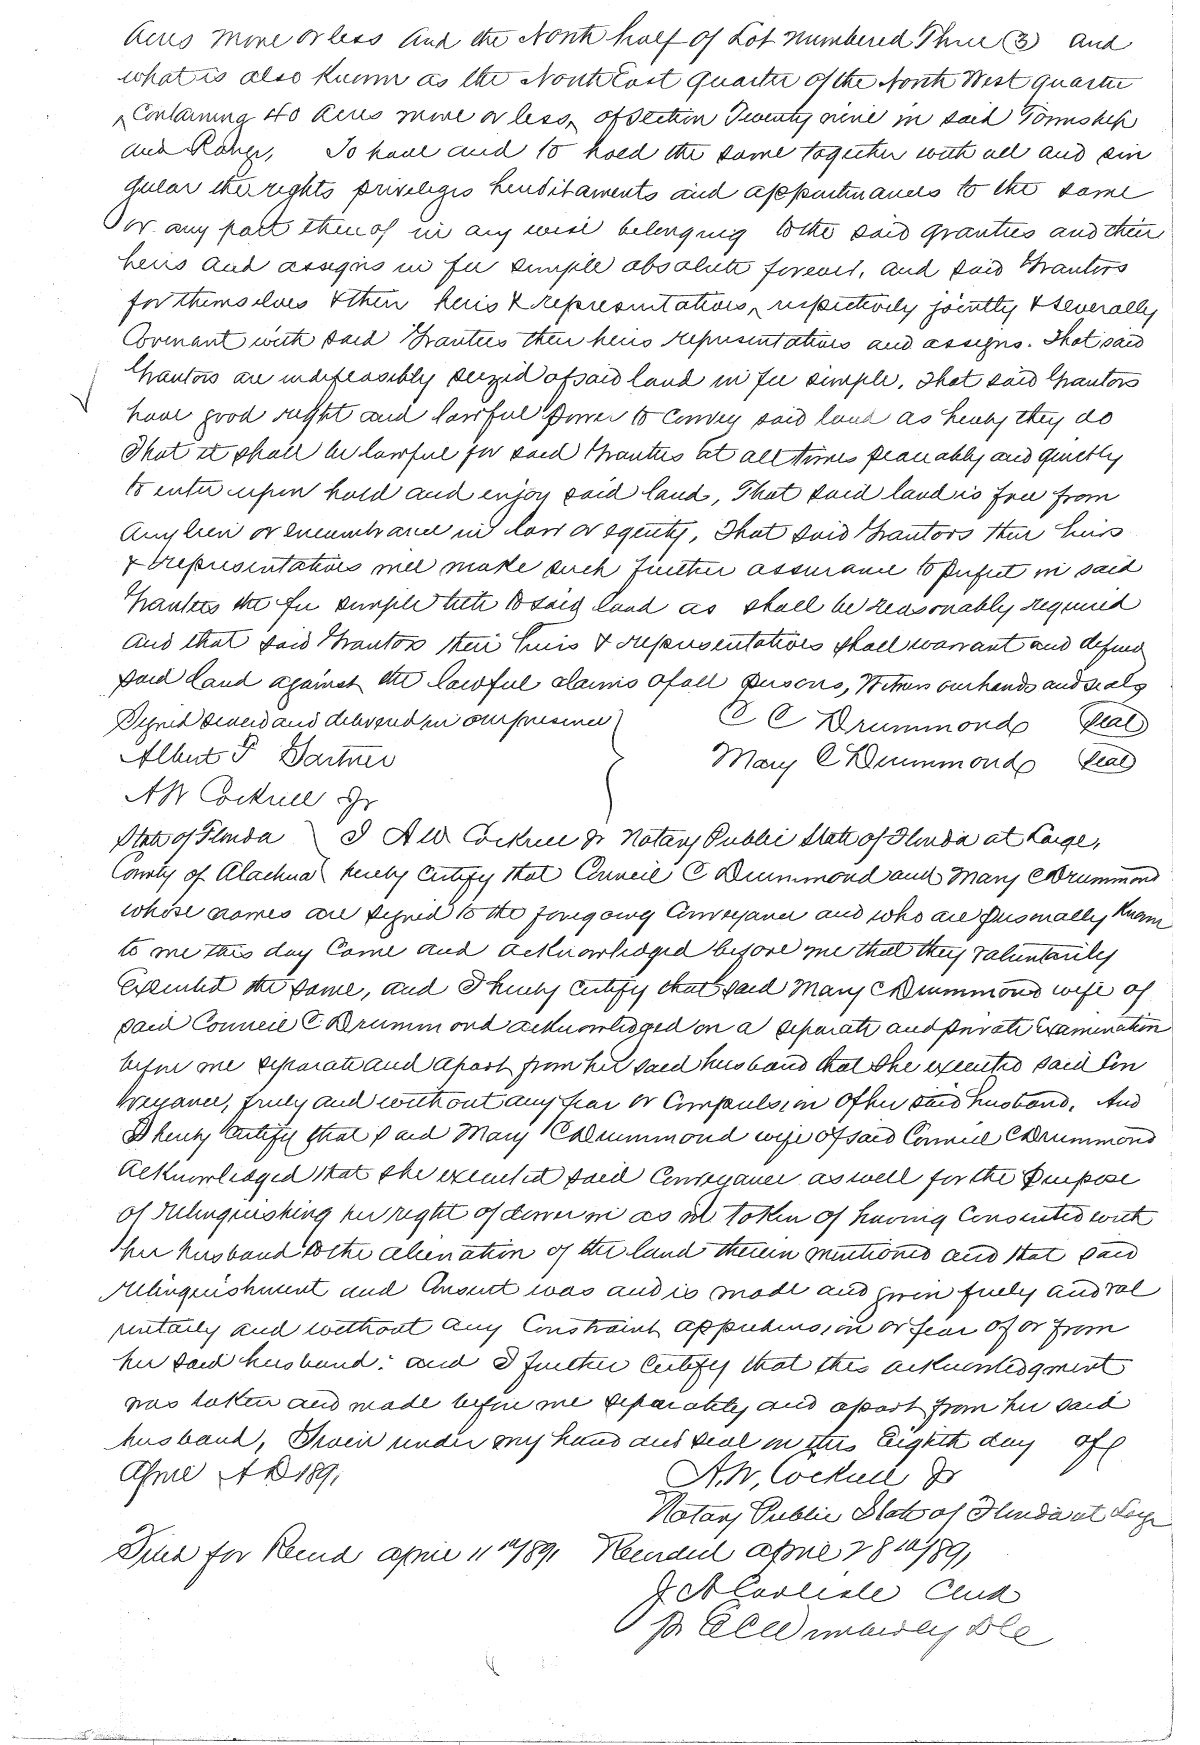 Acres more or less and the North half of Lot numbered Three (3) and
what is also Known as the North East quarter of the North West quarter
Containing 40 Acres more or less, of Section Twenty nine in said Township
and Range, To have and to hold the same together with all and sin
gular the rights privileges hereditaments and appurtenances to the same
or any part thereof in any wise belonging to the said grantees and their
heirs and assigns in fee simple absolute forever, and said Grantors
for themselves & their heirs & representatives, respectively jointly & severally
Covenant with said Grantees their heirs representatives and assigns. That said
Grantors are indefeasibly seized of said land in fee simple. That said Grantors
have good right and lawful power to convey said land as hereby they do
That it shall be lawful for said Grantees at all times peaceably and quietly
to enter upon hold and enjoy said land, That said land is free from
any lien or encumbrance in law or equity, That said Grantors their heirs
& representatives will make such further assurance to perfect in said
Grantees the fee simple title to said land as shall be reasonably required
And that said Grantors their heirs & representatives shall warrant and defend
said land against the lawful claims of all persons, Witness our hands and seals
Signed sealed and delivered in our presence C C Drummond (Seal)
Albert F Gartner Mary C Drummond (Seal)
A W Cockrell Jr
State of Florida I A W Cockrell Jr Notary Public State of Florida at Large,
County of Alachua hereby certify that Council C Drummond and Mary C Drummond
whose names are signed to the foregoing Conveyance and who are personally Known
to me this day Came and acknowledged before me that they voluntarily
Executed the same, and I hereby certify that said Mary C Drummond wife of
said Council C Drummond acknowledged on a separate and private Examination
before me separate and apart from her said husband that she executed said Con
veyance, freely and without any fear or Compulsion of her said husband. And
I hereby Certify that said Mary C Drummond wife of said Council C Drummond
Acknowledged that she executed said Conveyance as well for the Purpose
of relinquishing her right of dower in as in token of having Consented with
her husband to the alienation of the land therein mentioned and that said
relinquishment and Consent was and is made and given freely and vol
untarily and without any Constraint apprehension or fear of or from
her said husband: and I further Certify that this acknowledgment
was taken and made before me separately and apart from her said
husband, Given under my hand and seal on this Eighth day of
April A D 1891 A. W. Cockrell Jr
Notary Public State of Florida at Large
Filed for Record april 11 1891 Recorded april 28 1891
J A Carlisle Clerk
pr E C Wimberley D C